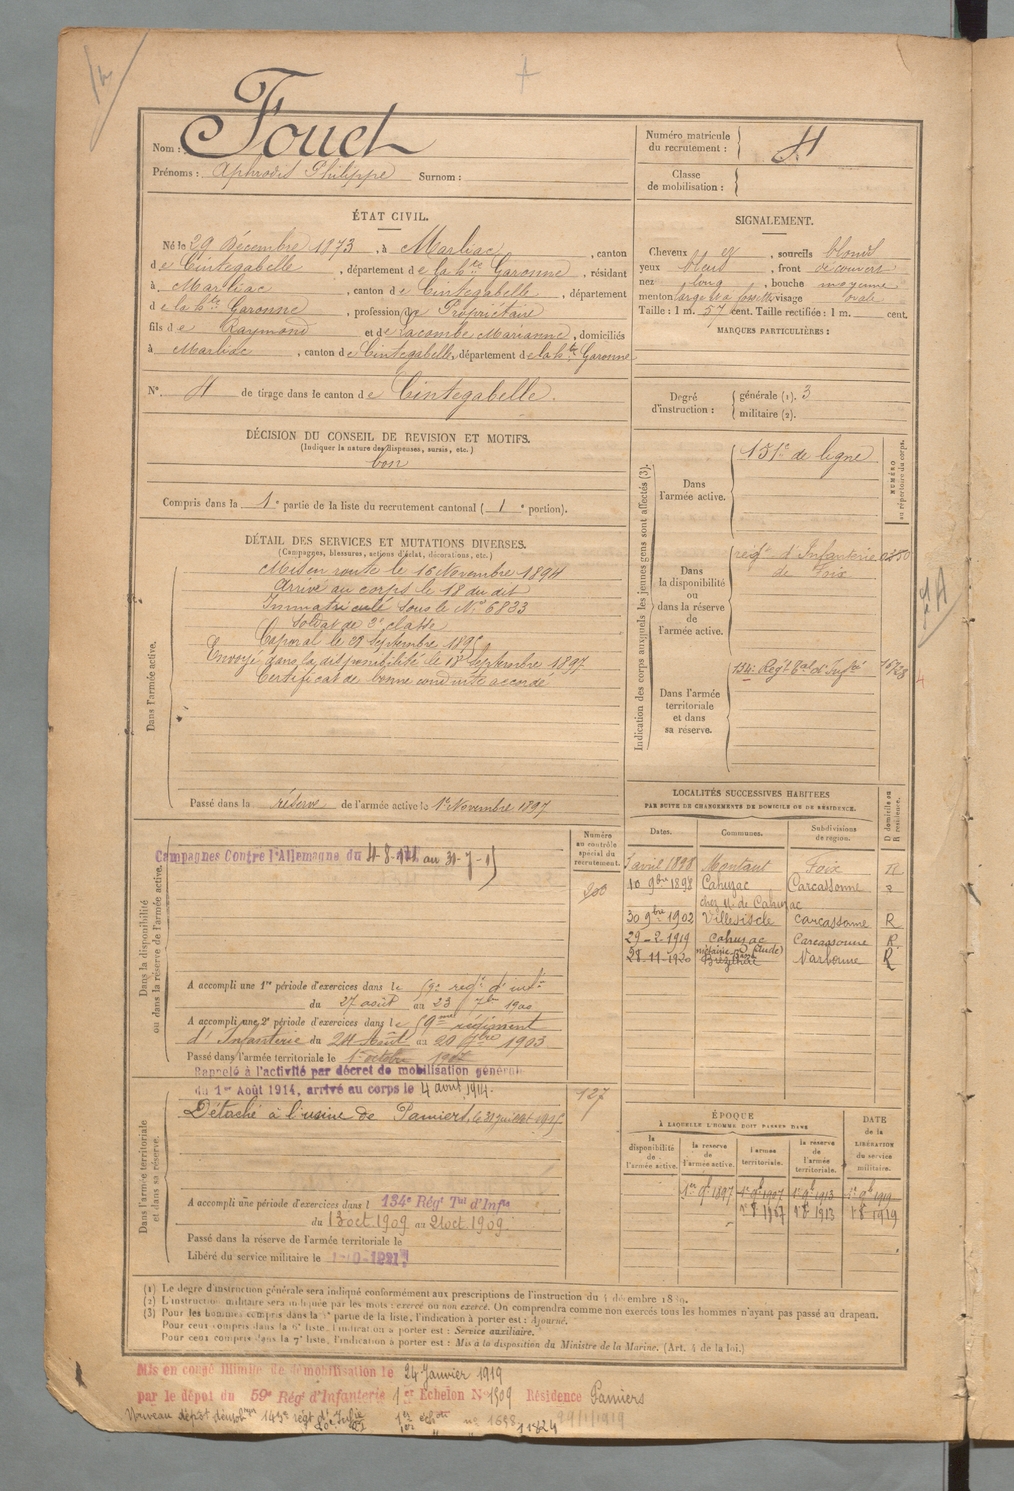 A
Nom : Fouet
Prénoms : Aphrodis Philippe Surnom :
Numéro matricule du recrutement : 4
Classe de mobilisation :
ÉTAT CIVIL.
Né le 29 Décembre 1873, à Marliac, canton
de Cintegabelle, département de la hte Garonne, résidant
à Marliac, canton de Cintegabelle, département
de la hte Garonne, profession de Propriétaire
fils de Raymond et de Lacombe Marianne, domiciliés
à Marliac, canton de Cintegabelle, département de la hte Garonne
N° 4 de tirage dans le canton de Cintegabelle.
SIGNALEMENT.
Cheveux et, sourcils blonds
yeux bleus, front découvert
nez long, bouche moyenne
menton large à fossette visage ovale
Taille : 1 m. 57 cent. Taille rectifiée : 1 m. cent.
MARQUES PARTICULIÈRES :
Degré d'instruction : générale (1). 3
militaire (2).
DÉCISION DU CONSEIL DE REVISION ET MOTIFS.
(Indiquer la nature des dispenses, sursis, etc.)
bon
Compris dans la 1e partie de la liste du recrutement cantonal (1e portion).
DÉTAIL DES SERVICES ET MUTATIONS DIVERSES.
(Campagnes, blessures, actions d'éclat, décorations, etc.)
Dans l'armée active.
Mis en route le 16 Novembre 1894
Arrivé au corps le 18 du dit
Immatriculé sous le N° 6833
Soldat de 2e classe
Caporal le 28 Septembre 1895
Envoyé dans la disponibilité le 18 Septembre 1897
Certificat de bonne conduite accordé
Passé dans la réserve de l'armée active le 1er Novembre 1897
Indication des corps auxquels les jeunes gens sont affectés (3).
NUMÉRO au répertoire du corps.
Dans l'armée active.
151e de ligne
Dans la disponibilité ou dans la réserve de l'armée active.
regt d'Infanterie
de Foix
Dans l'armée territoriale et dans sa réserve.
134e Régt Tal d'Infie
LOCALITÉS SUCCESSIVES HABITÉES
PAR SUITE DE CHANGEMENTS DE DOMICILE OU DE RÉSIDENCE.
Dates. Communes. Subdivisions de région. D domicile ou R résidence.
5 avril 1898 Montaut Foix R
10 9bre 1898 Cahuzac Carcassonne R
chez M. de Cahuzac
30 9bre 1902 Villesiscle Carcassonne R
29-2-1919 Cahuzac Carcassonne R.
28-11-1920 Narbonne R
Dans la disponibilité ou dans la réserve de l'armée active.
Numéro au contrôle spécial du recrutement.
203
Campagnes Contre l'Allemagne du 4-8-14 au 31-7-15
A accompli une 1re période d'exercices dans le 59e regt d'inf.
du 27 août au 23 7bre 1900
A accompli une 2e période d'exercices dans le 59me régiment
d'Infanterie du 24 Août au 20 7bre 1903
Passé dans l'armée territoriale le 1er octobre 1907
Rappelé à l'activité par décret de mobilisation générale
du 1er Août 1914, arrivé au corps le 4 août 1914.
Dans l'armée territoriale et dans sa réserve.
127
Détaché à l'usine de Pamiers, le 31 juillet 1915
A accompli une période d'exercices dans l 134e Régt Tal d'Infie
du 13 oct. 1909 au 21 oct. 1909
Passé dans la réserve de l'armée territoriale le
Libéré du service militaire le
ÉPOQUE
À LAQUELLE L'HOMME DOIT PASSER DANS
la disponibilité de l'armée active.
la réserve de l'armée active.
l'armée territoriale.
la réserve de l'armée territoriale.
DATE de la LIBÉRATION du service militaire.
(1) Le degré d'instruction générale sera indiqué conformément aux prescriptions de l'instruction du 4 décembre 1889.
(2) L'instruction militaire sera indiquée par les mots : exercé ou non exercé. On comprendra comme non exercés tous les hommes n'ayant pas passé au drapeau.
(3) Pour les hommes compris dans la 5e partie de la liste, l'indication à porter est : Ajourné.
Pour ceux compris dans la 6e liste, l'indication à porter est : Service auxiliaire.
Pour ceux compris dans la 7e liste, l'indication à porter est : Mis à la disposition du Ministre de la Marine. (Art. 4 de la loi.)
Mis en congé illimité de démobilisation le 24 Janvier 1919
par le dépôt du 59e Régt d'Infanterie 1er Echelon N° 1309 Résidence Pamiers
Nouveau dépôt démobeur 143e régt d'Infie